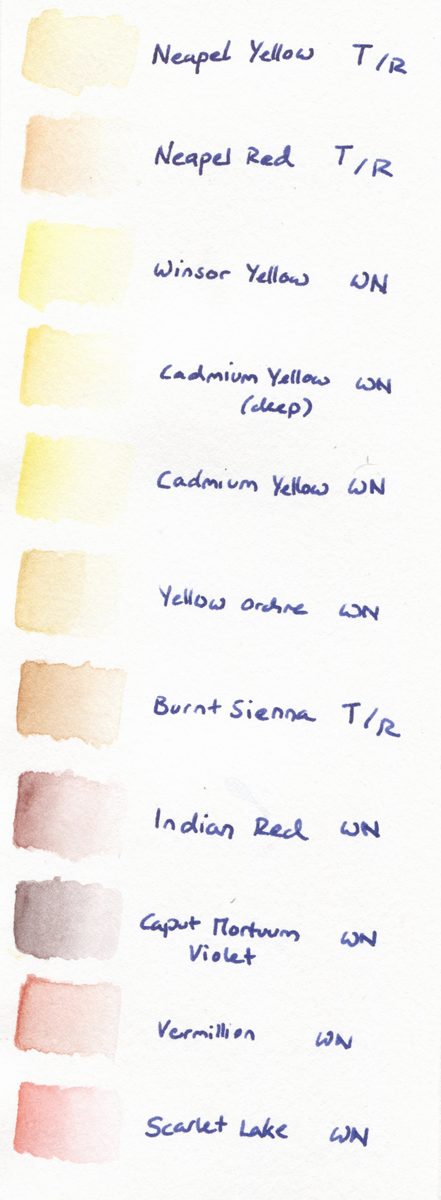 Neapel Yellow T/R
Neapel Red T/R
Winsor Yellow WN
Cadmium Yellow WN
(deep)
Cadmium Yellow WN
Yellow Orchre WN
Burnt Sienna T/R
Indian Red WN
Caput Mortuum WN
Violet
Vermillion WN
Scarlet Lake WN